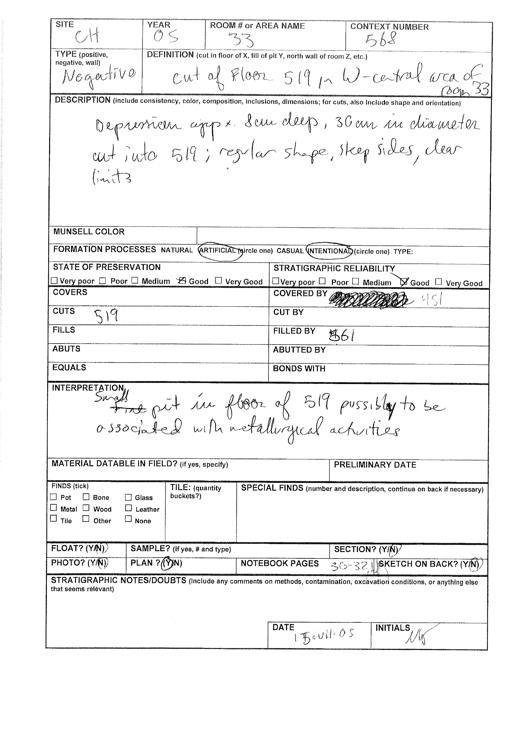 SITE
CH
YEAR
05
ROOM # or AREA NAME
33
CONTEXT NUMBER
568
TYPE (positive, negative, wall)
Negative
DEFINITION (cut in floor of X, fill of pit Y, north wall of room Z, etc.)
cut of Floor 519 in W-central area of
room 33
DESCRIPTION (Include consistency, color, composition, inclusions, dimensions; for cuts, also include shape and orientation)
Depression app x. 8cm deep, 30cm in diameter
cut into 519; regular shape, steep sides, clear
limits
MUNSELL COLOR
FORMATION PROCESSES NATURAL ARTIFICIAL (circle one) CASUAL INTENTIONAL (circle one) TYPE:
STATE OF PRESERVATION
☐ Very poor ☐ Poor ☐ Medium ☒ Good ☐ Very Good
STRATIGRAPHIC RELIABILITY
☐ Very poor ☐ Poor ☐ Medium ☒ Good ☐ Very Good
COVERS
COVERED BY 451
CUTS 519
CUT BY
FILLS
FILLED BY 561
ABUTS
ABUTTED BY
EQUALS
BONDS WITH
INTERPRETATION
Small pit in floor of 519 possibly to be
associated with metallurgical activities
MATERIAL DATABLE IN FIELD? (if yes, specify)
PRELIMINARY DATE
FINDS (tick)
☐ Pot ☐ Bone ☐ Glass
☐ Metal ☐ Wood ☐ Leather
☐ Tile ☐ Other ☐ None
TILE: (quantity buckets?)
SPECIAL FINDS (number and description, continue on back if necessary)
FLOAT? (Y/N)
SAMPLE? (if yes, # and type)
SECTION? (Y/N)
PHOTO? (Y/N)
PLAN ? (Y/N)
NOTEBOOK PAGES 30-32
SKETCH ON BACK? (Y/N)
STRATIGRAPHIC NOTES/DOUBTS (Include any comments on methods, contamination, excavation conditions, or anything else
that seems relevant)
DATE
VII-05
INITIALS